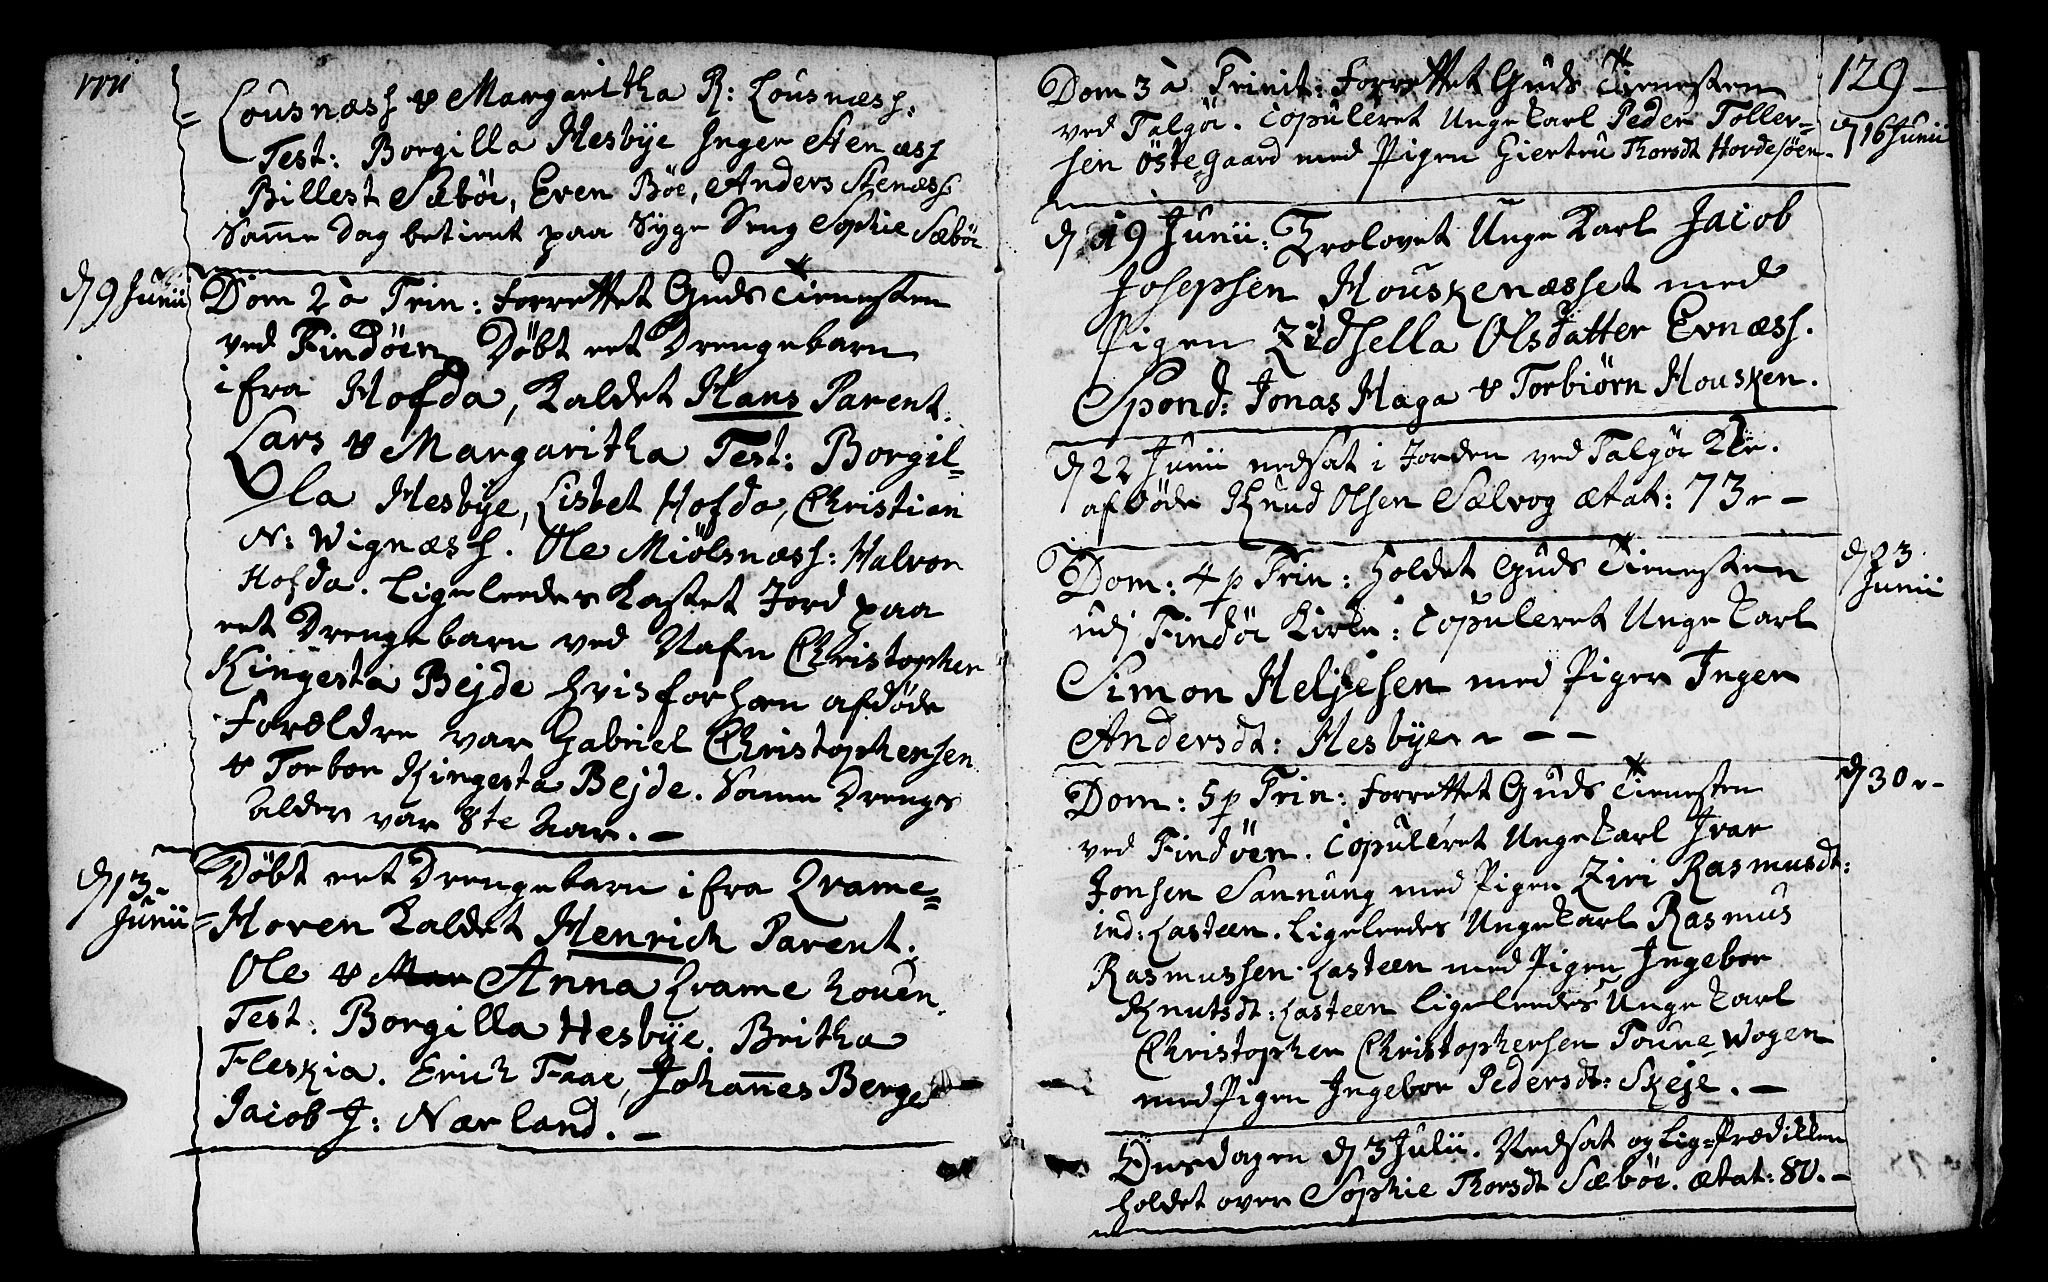 1771
Lousnæss & Margaritha R: Lousnæss:
Test: Borgilla Hesbÿe Inger Stenæss
Billest Sæböe, Even Böe, Anders Stenæss
Samme Dag betient paa Syge Seng Sophie Sæböe
d 9 Junii
Dom 2 à Trin: Forrettet Guds Tienesten
ved Findöen Döbt eet Drengebarn
ifra Hofda, Kaldet Hans Parent.
Lars & Margaritha Test: Borgil=
la Hesbÿe, Lisbet Hofda, Christian
N: Wignæss. Ole Miölsnæss: Halvor
Hofda. Ligeleedes Kastet Jord paa
eet Drengebarn ved Nafn Christopher
Kingesta Bejde hvis forhen afdöde
Forældre var Gabriel Christophersen
& Torbor Kingesta Bejde. Samme Drengs
Alder var 8te Aar. –
d 13 Junii
Döbt eet Drengebarn ifra Qrame=
Hoven Kaldet Henrich Parent.
Ole & Mar Anna Qrame hoven
Test. Borgilla Hesbÿe. Britha
Fleskia. Erich Faae, Johannes Berge
Jacob J: Nærland. –
129 –
Dom 3 à Trinit: Forrettet Guds Tienesten
ved Talgöe. Copuleret Unge Karl Peder Toller=
d 16 Junii
sen Östegaard med Pigen Giertru Thorsdt Hordesöen.
d 19 Junii: Trolovet Unge Karl Jacob
Josephsen Houskenæsset med
Pigen Zidsella Olsdatter Evnæss.
Spond: Jonas Haga & Torbiörn Housken.
d 22 Junii nedsat i Jorden ved Talgöe Kke.
afdöde Knud Olsen Sælvog ætat: 73 –
d 23 Junii
Dom: 4 p Trin: Holdet Guds Tienesten
udj Findöe Kirke: Copuleret Unge Karl
Simon Heljesen med Pigen Inger
Andersdt: Hesbÿe – –
d 30
Dom: 5 p Trin: Forrettet Guds Tienesten
ved Findöen. Copuleret Unge Karl Ivar
Jonsen Sannung med Pigen Ziri Rasmusdt:
ind: Lasteen. Ligeleedes Unge Karl Rasmus
Rasmussen Lasteen med Pigen Ingebor
Knutsdt: Lasteen ligeleedes Unge Karl
Christopher Christophersen Toune Wogen
med Pigen Ingebor Pedersdt: Skeje. –
Onsdagen d 3 Julii. Nedsat og Lig=Prædikken
holdet over Sophie Thorsdt Sæböe. Ætat: 80. –